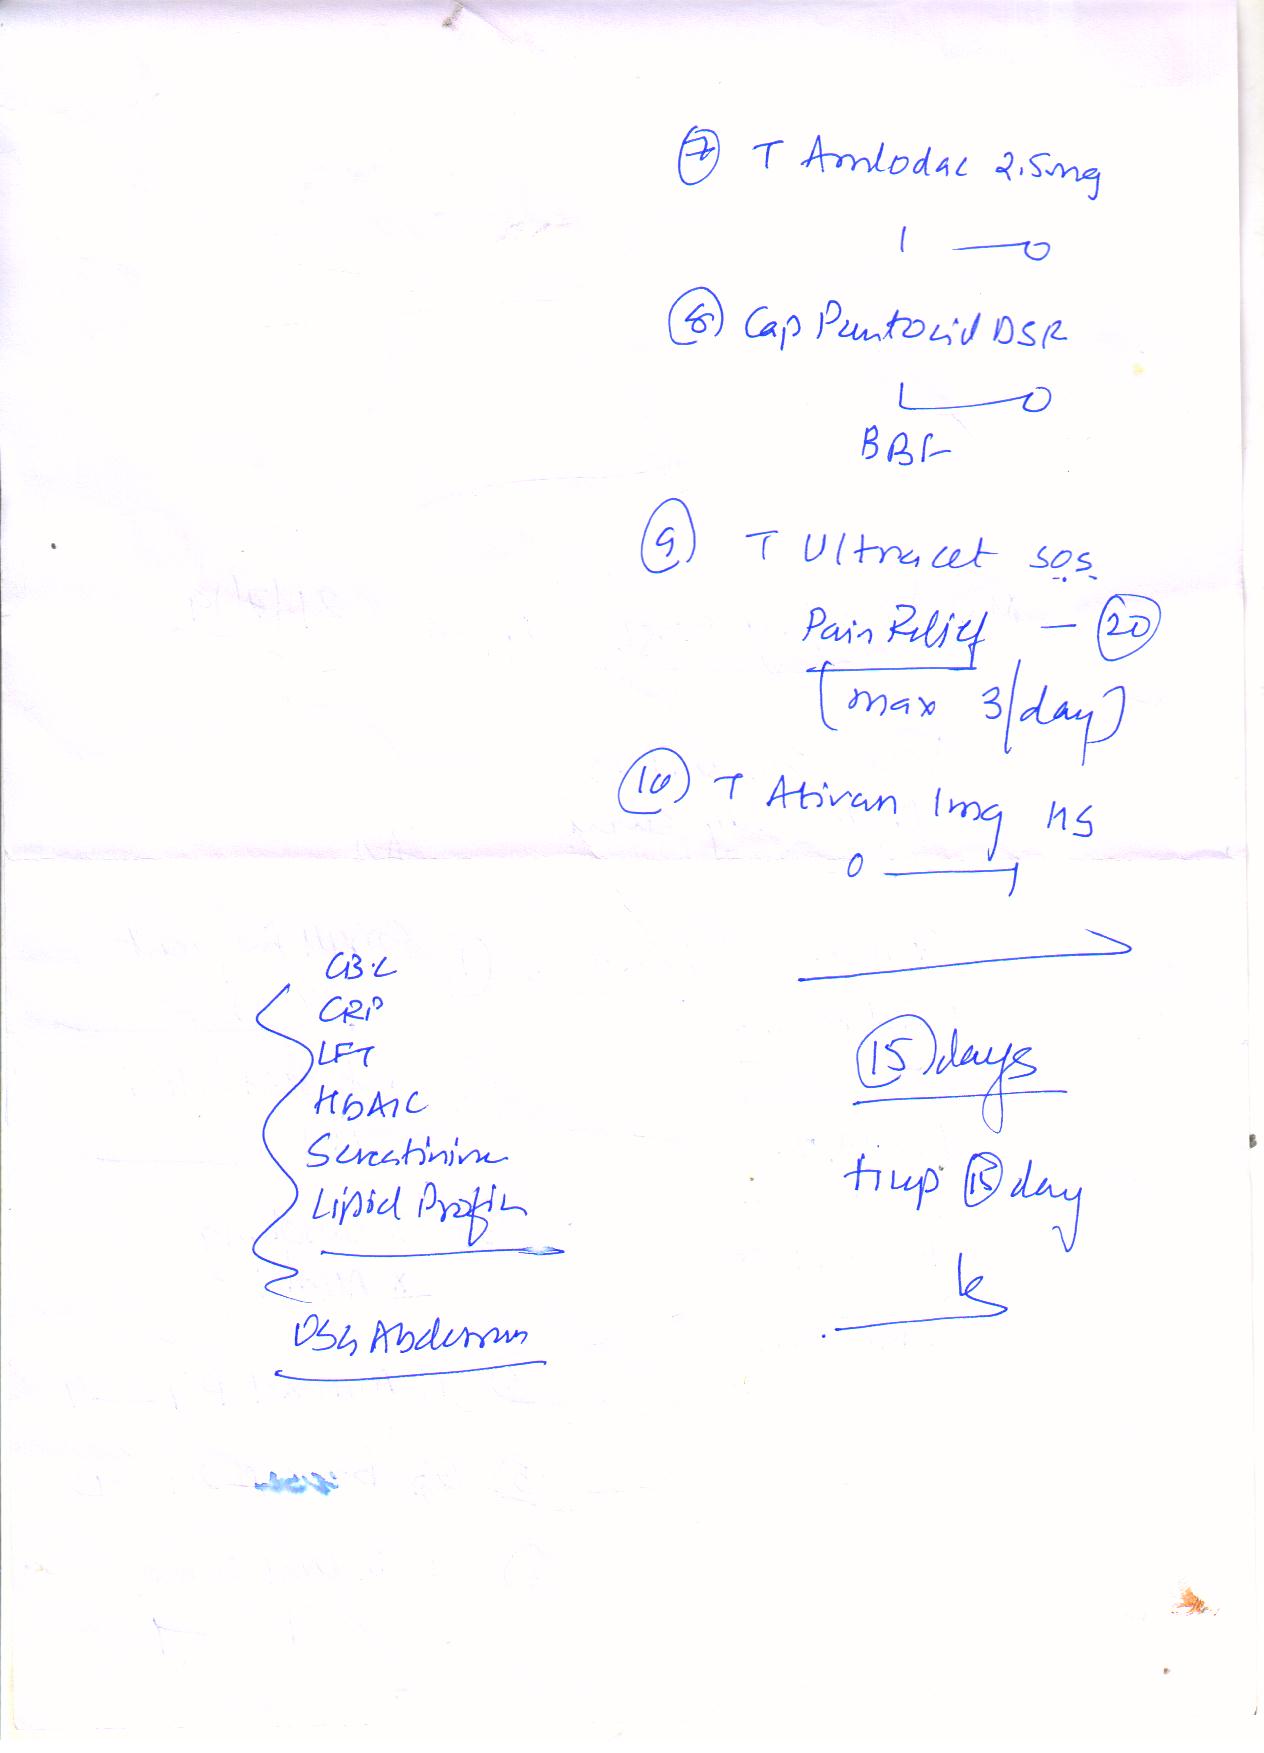 7 T Amlodac 2.5mg
1 — 0
8 Cap Pantocid DSR
1 — 0
BBF
9 T Ultracet sos
Pain Relief — 20
(max 3/day)
10 T Ativan 1mg HS
0 — 1
15 days
15 day
CBC
CRP
LFT
HbA1C
S creatinine
Lipid Profile
USG Abdomen